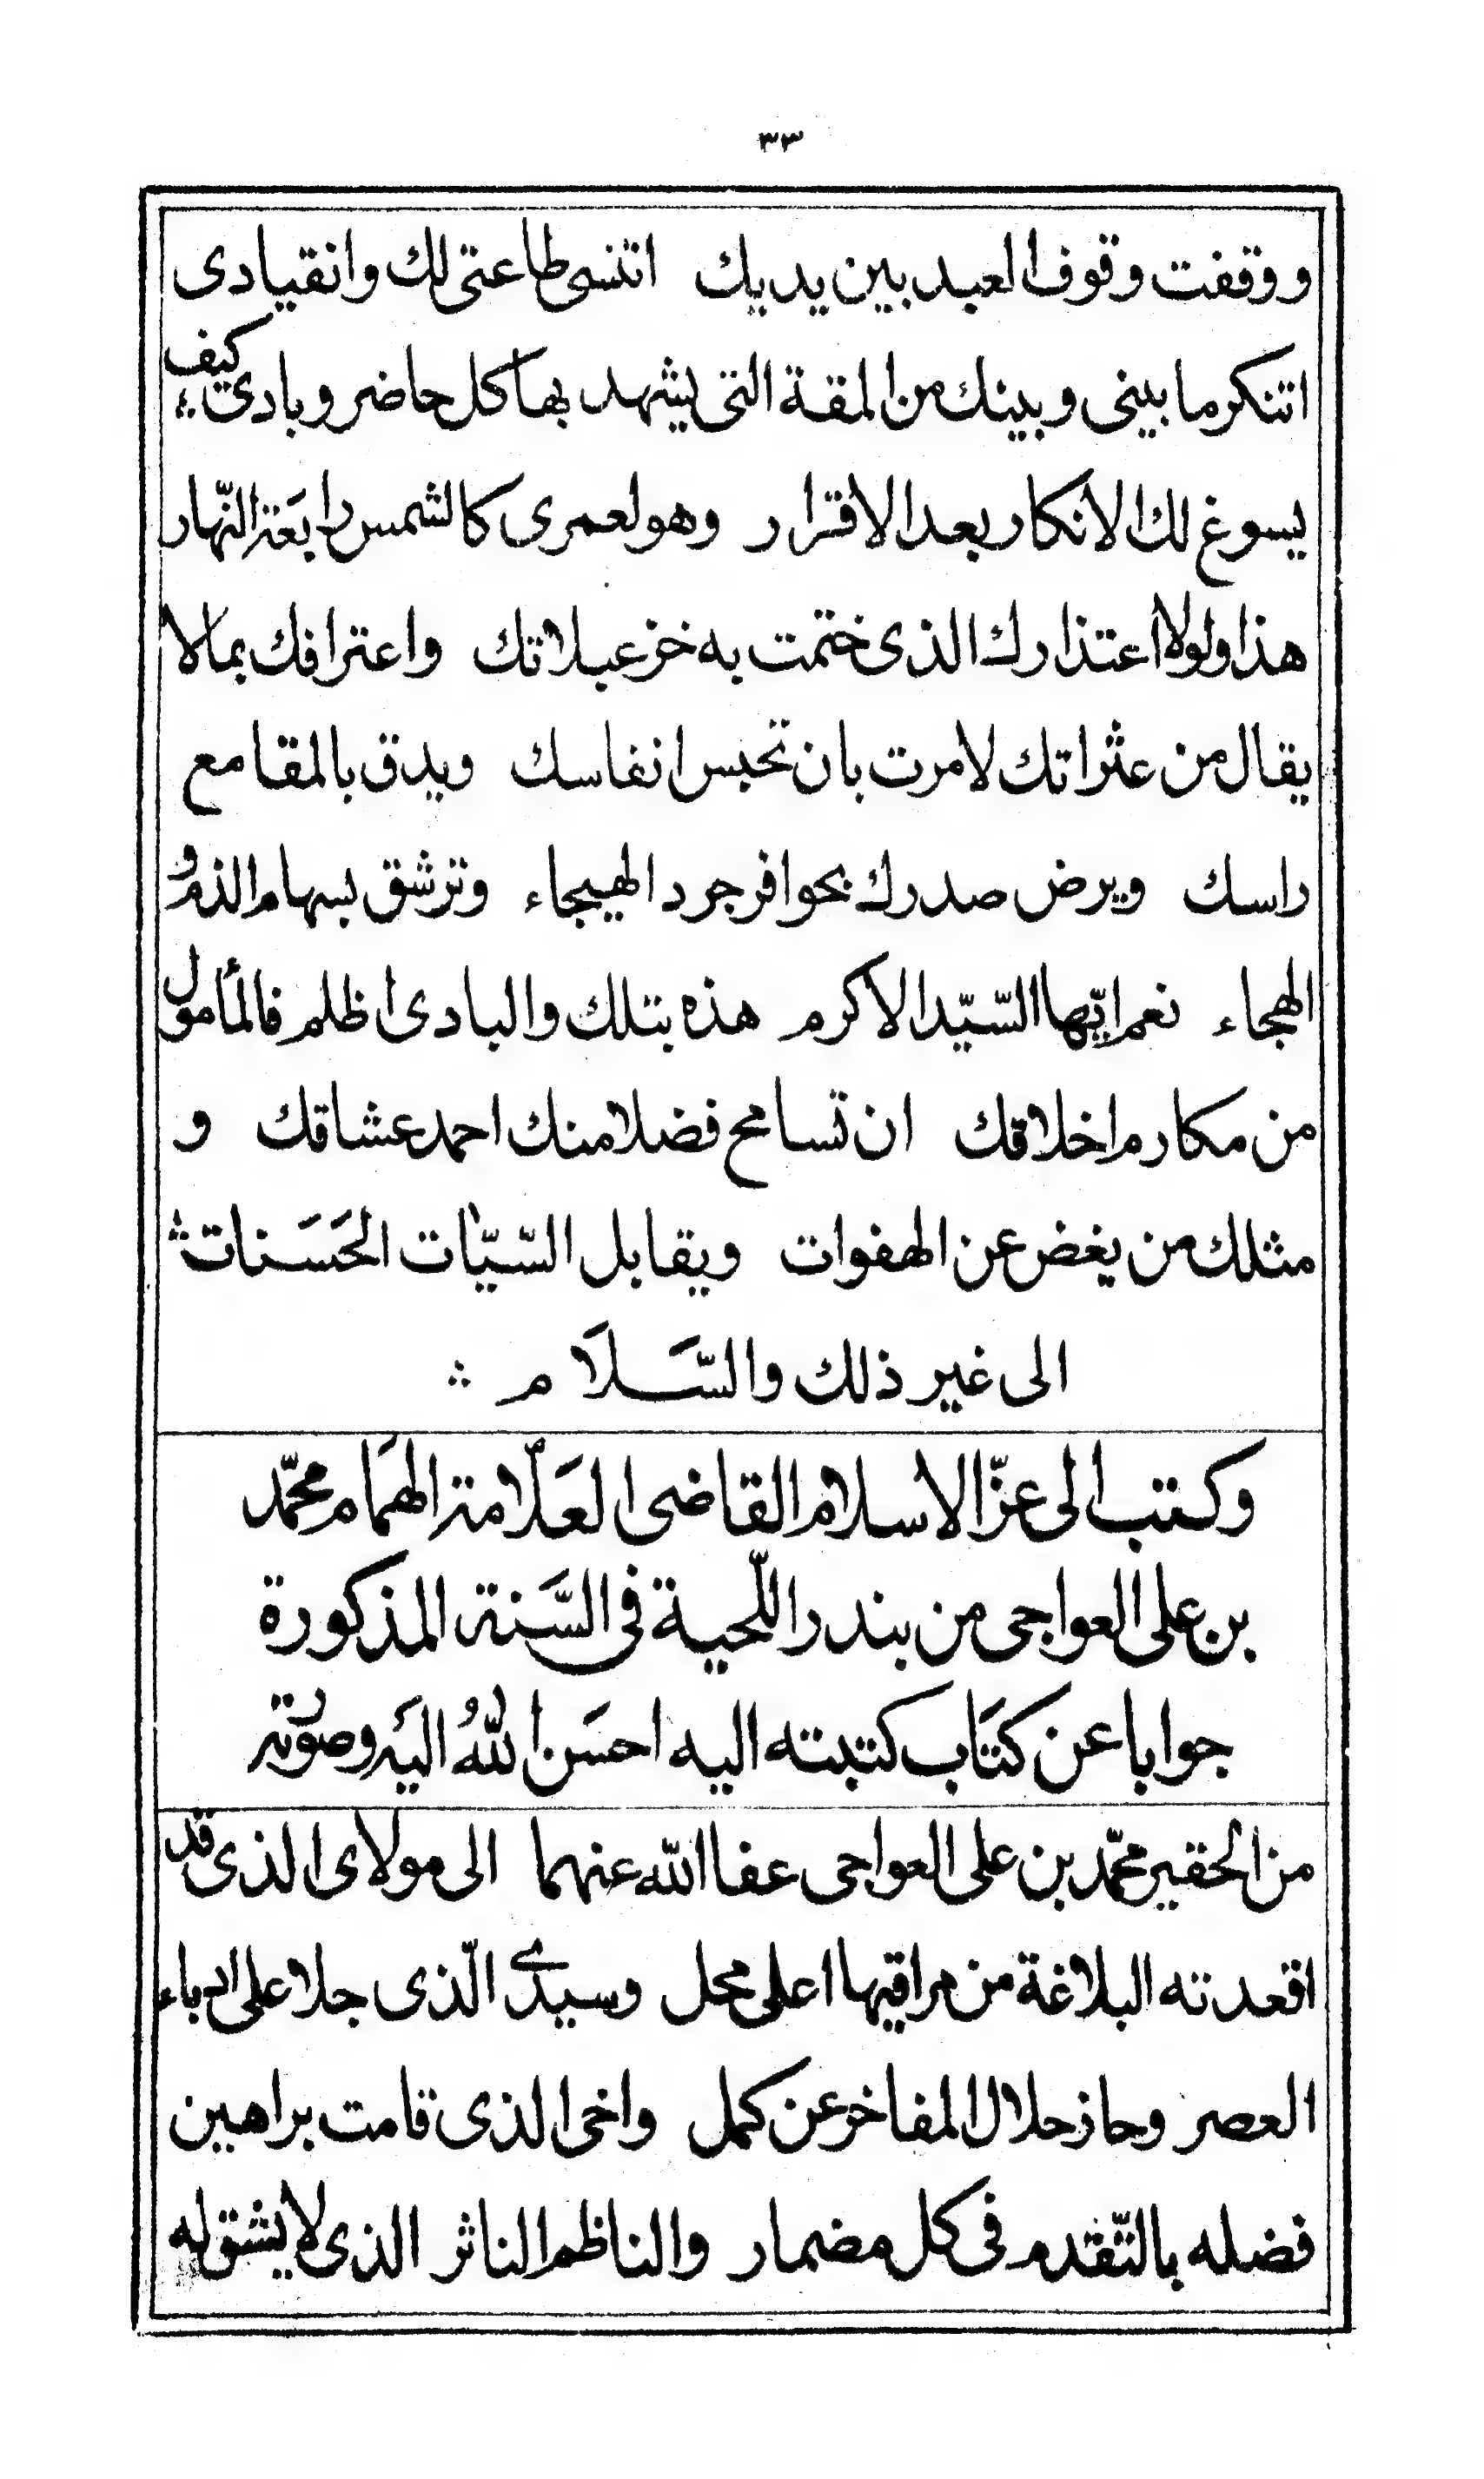 ٣٣
ووقفت وقوف العبد بين يديك اتنسى طاعتى لك وانقيادى
اتنكر ما بينى وبينك من المقة التى يشهد بها كل حاضر وبادى كيف
يسوغ لك الانكار بعد الاقرار وهو لعمرى كالشمس رابعة النّهار
هذا ولولا اعتذارك الذى ختمت به خزعبلاتك واعترافك بما لا
يقال من عثراتك لامرت بان تحبس انفاسك ويدق بالمقامع
راسك ويرض صدرك بحوافر جرد الهيجاء وترشق بسهام الذم و
الهجاء نعم ايّها السّيّد الاكرم هذه بتلك والبادى اظلم فالمأمول
من مكارم اخلاقك ان تسامح فضلا منك احمد عشاقك و
مثلك من يغض عن الهفوات ويقابل السّيّات الحَسَنات
الى غير ذلك والسَّلَام
وكتب الى عزّ الاسلام القاضى العَلّامة الهَمام محمّد
بن على العواجى من بندر اللّحية فى السَّنة المذكورة
جوابا عن كتَاب كتبته اليه احسَن اللهُ اليَه وصورته
من الحقير محمّد بن على العواجى عفا الله عنهما الى مولاى الذى قد
اقعدته البلاغة من مراقيها اعلى محل وسيدى الّذى جلا على ادباء
العصر وحاز حلال المفاخر عن كمل واخى الذى قامت براهين
فضله بالتّقدم فى كل مضمار والناظم الناثر الذى لا يشق له